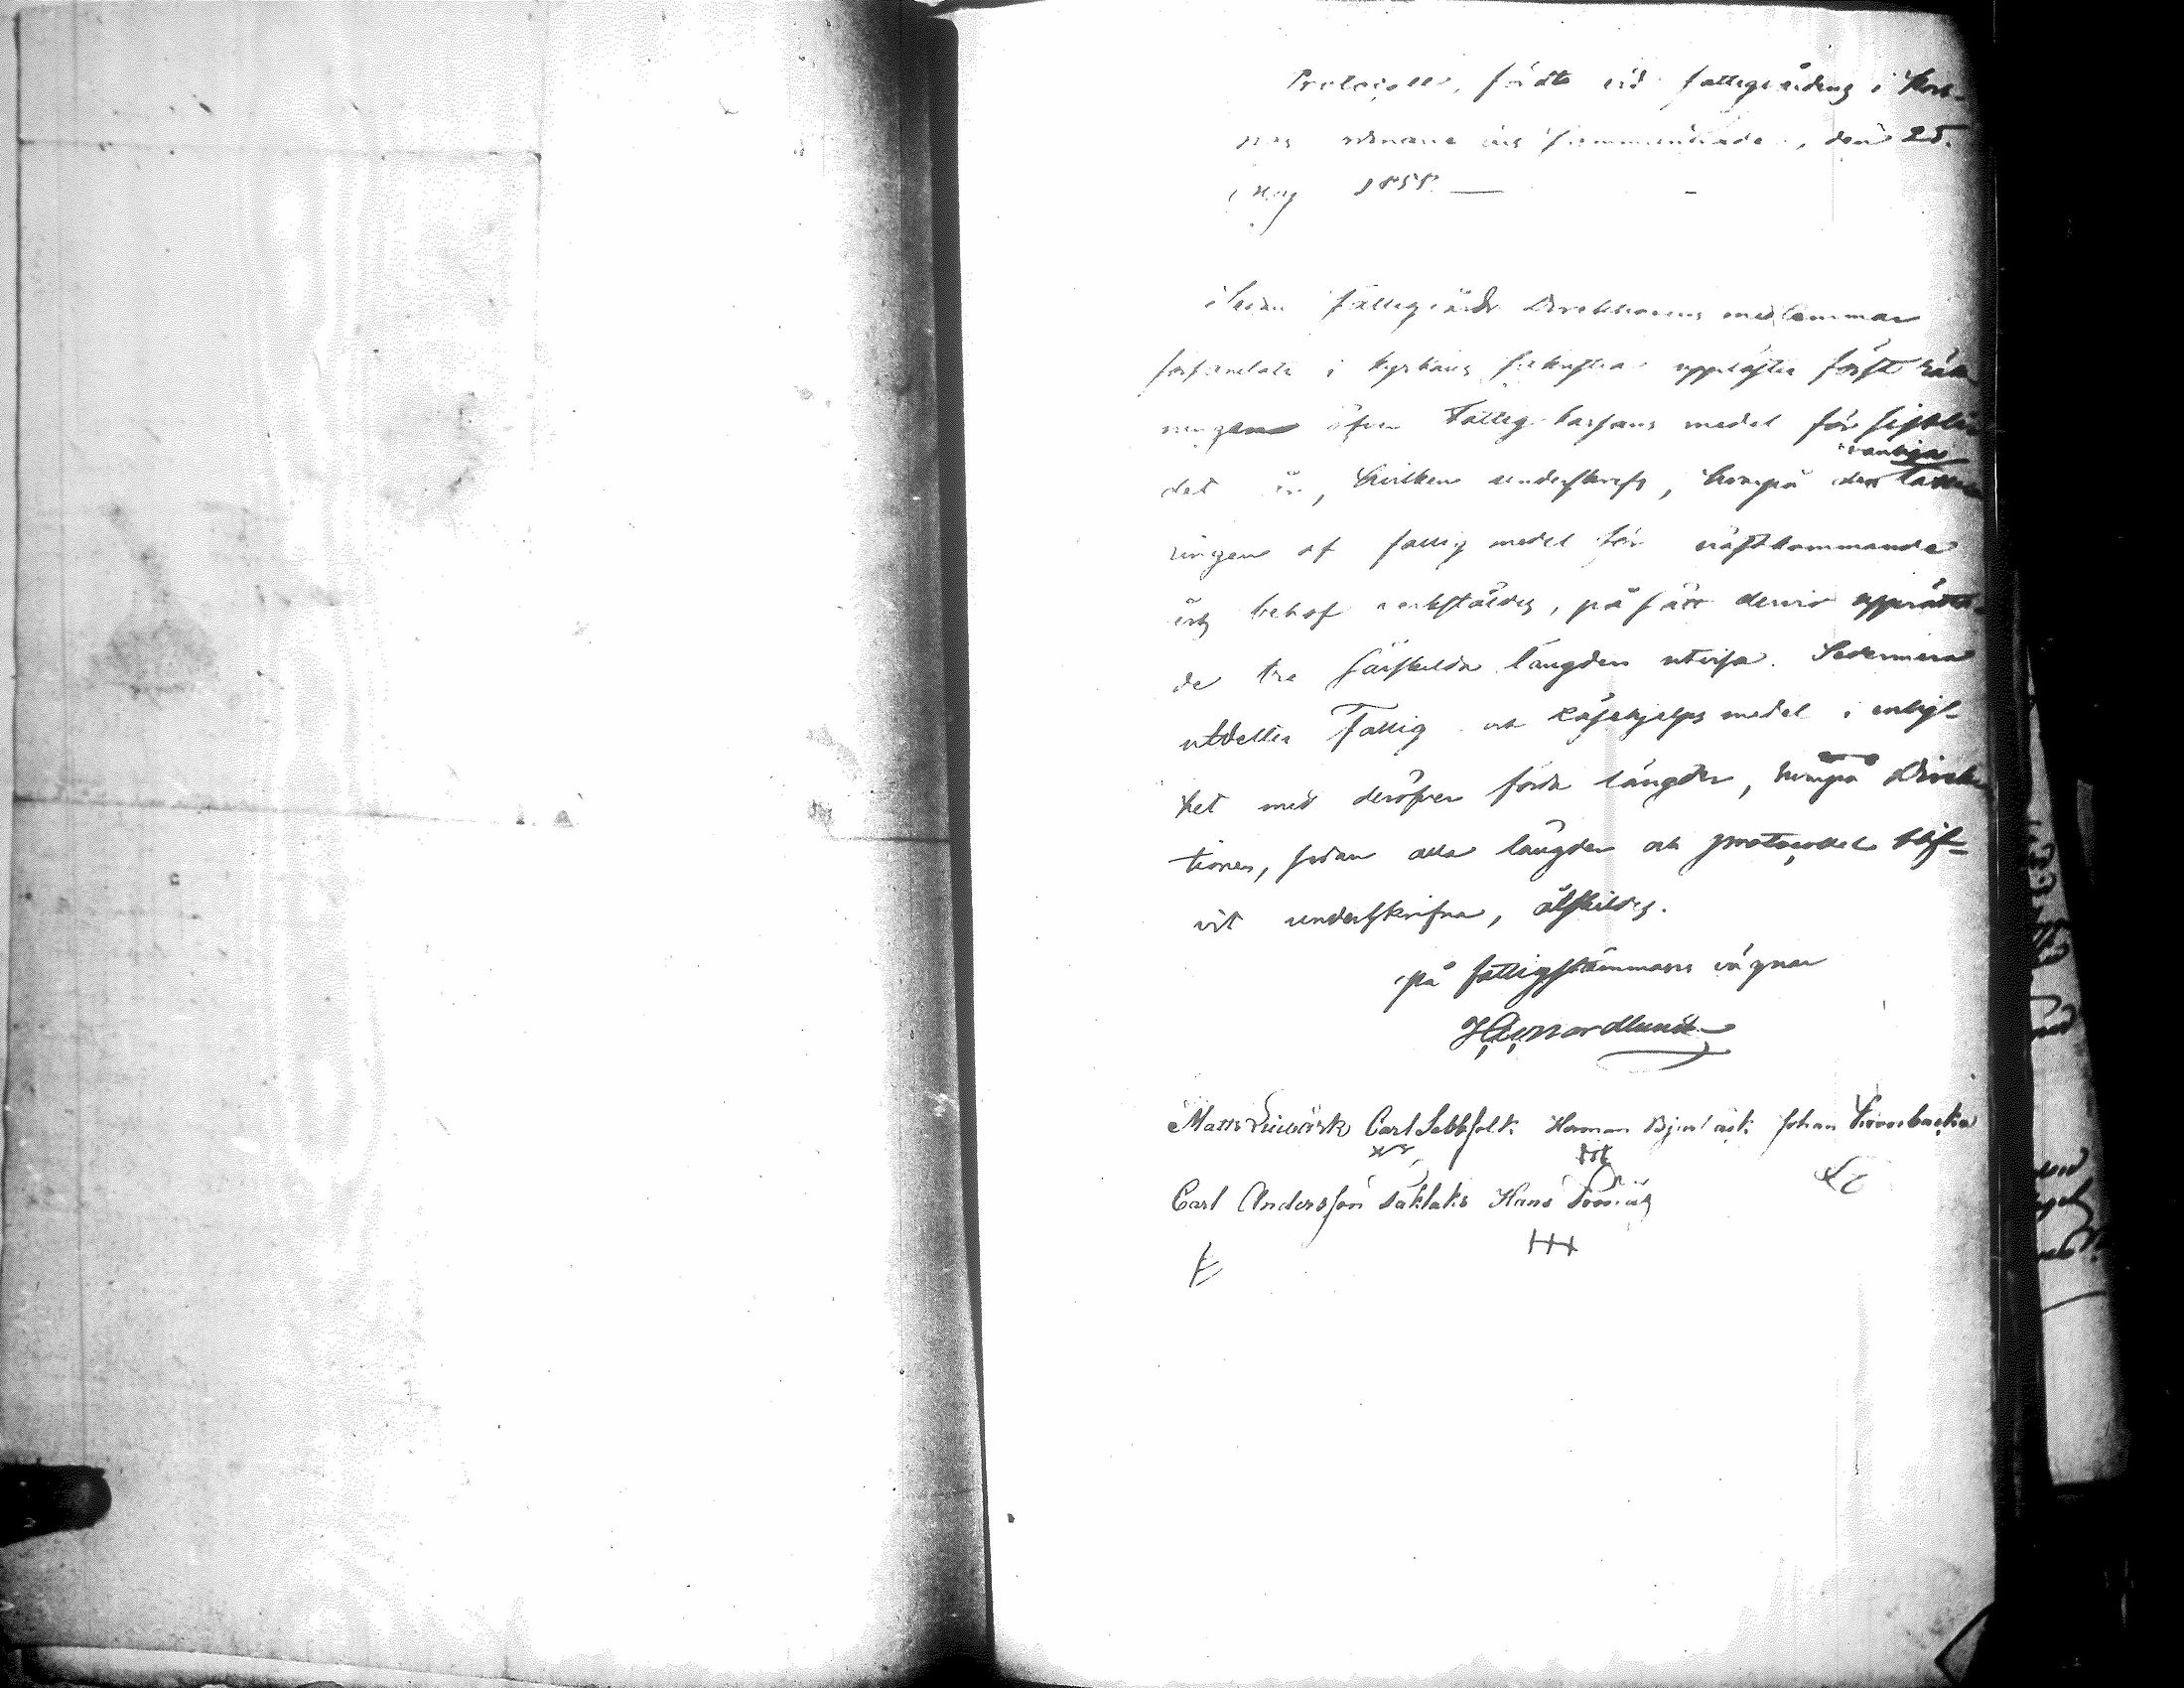 Protocoll, fördt vid fattigvårdens i Kors-
näs
May 1855.
Sedan fattigvårds Direktionens medlemmar
församlats i kyrkans sakristia upplästes först räk
ningen öfver Fattig kassans medel för sistlid
det år, hvilken underskrefs, hvarpå den vanliga taxe
ringen af fattig medel för nästkommande
års behof verkstäldes, på sätt dervid upprätta-
de tre särskilda längder utvisa. Sedermera
utdeltes Fattig och medel i enlig-
het med deröfver förda längder, hvarpå Direk
tionen, sedan alla längder och protocollet blif-
vit underskrifna, åtskildes.
på fattigstämmans vägnar
Nordlund
Matts Carl Sebbfolk Herman Johan
Carl Andersson Taklaks Hans